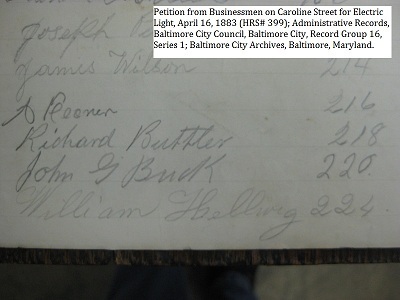 Petition from Businessmen on Caroline Street for Electric
Light, April 16, 1883 (HRS# 399); Administrative Records,
Baltimore City Council, Baltimore City, Record Group 16,
Series 1; Baltimore City Archives, Baltimore, Maryland.
Joseph
James Wilson 214
216
Richard Buttler 218
John G Buck 220.
William Hellwig 224.